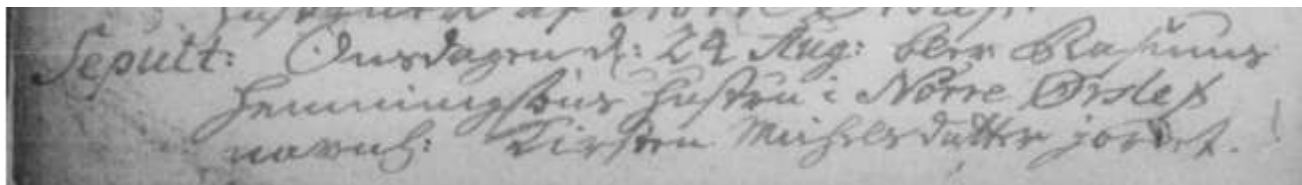 af Nörre Örslef.
Sepult: Onsdagen d: 24 Aug: blev Rasmus
Hemmingsöns Hustru i Nörre Örslef
navnl: Kirsten Michelsdatter jordet.